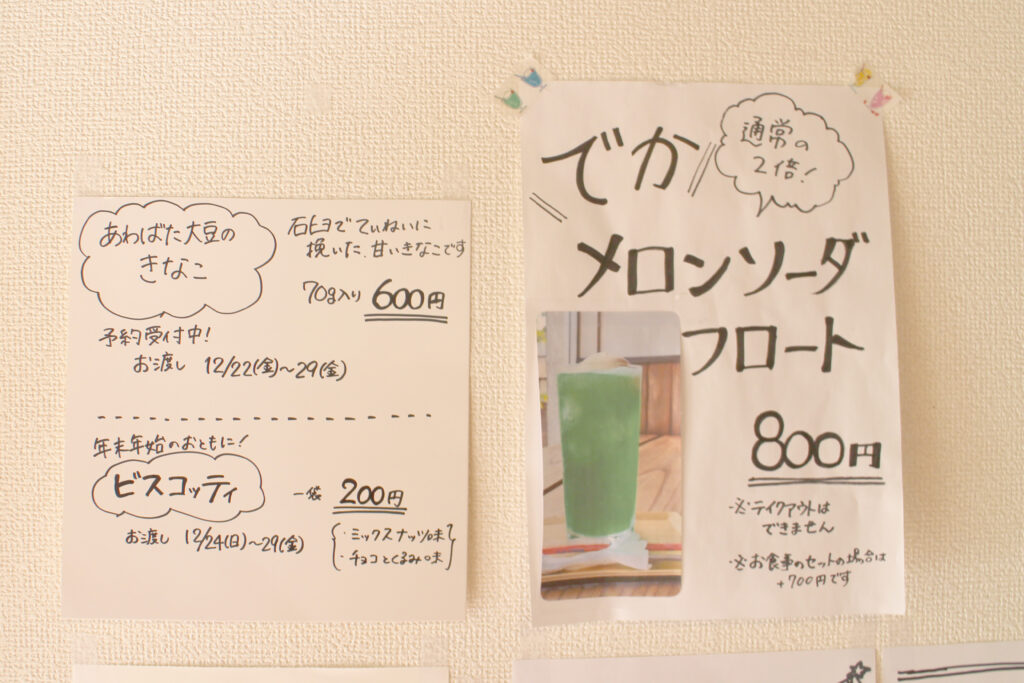 あわばた大豆の
きなこ
石臼でていねいに
挽いた、甘いきなこです
70g入り 600円
予約受付中!
お渡し 12/22(金)〜29(金)
年末年始のおともに!
ビスコッティ
一袋 200円
お渡し 12/24(日)〜29(金)
・ミックスナッツ味
・チョコとくるみ味
でか
通常の
2倍!
メロンソーダ
フロート
800円
※テイクアウトは
できません
※お食事のセットの場合は
+700円です